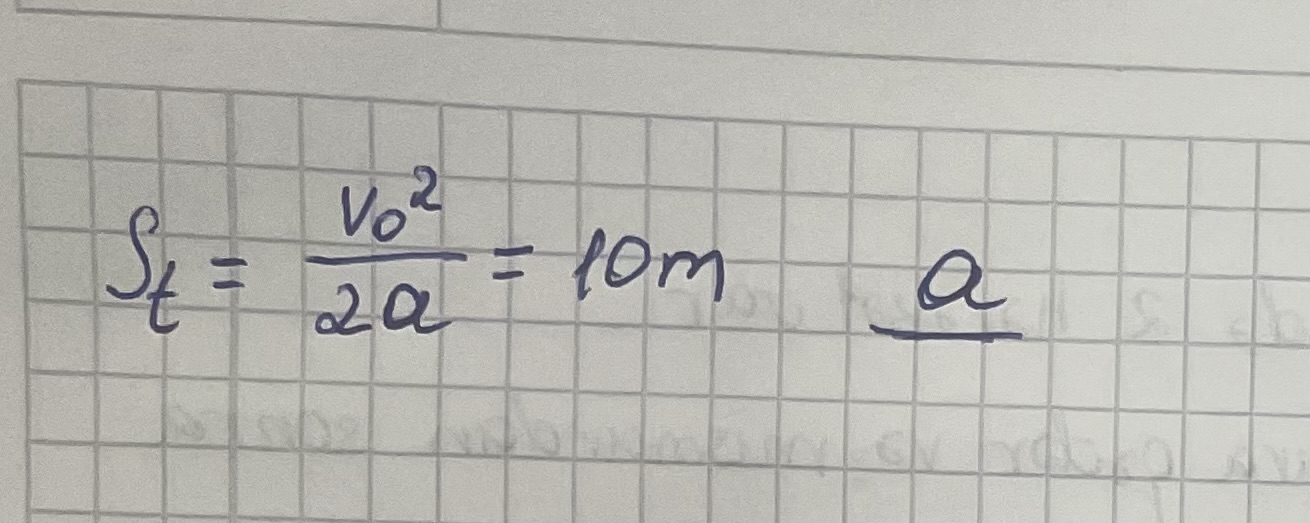 S_t = v_0^2 / 2a = 10m a